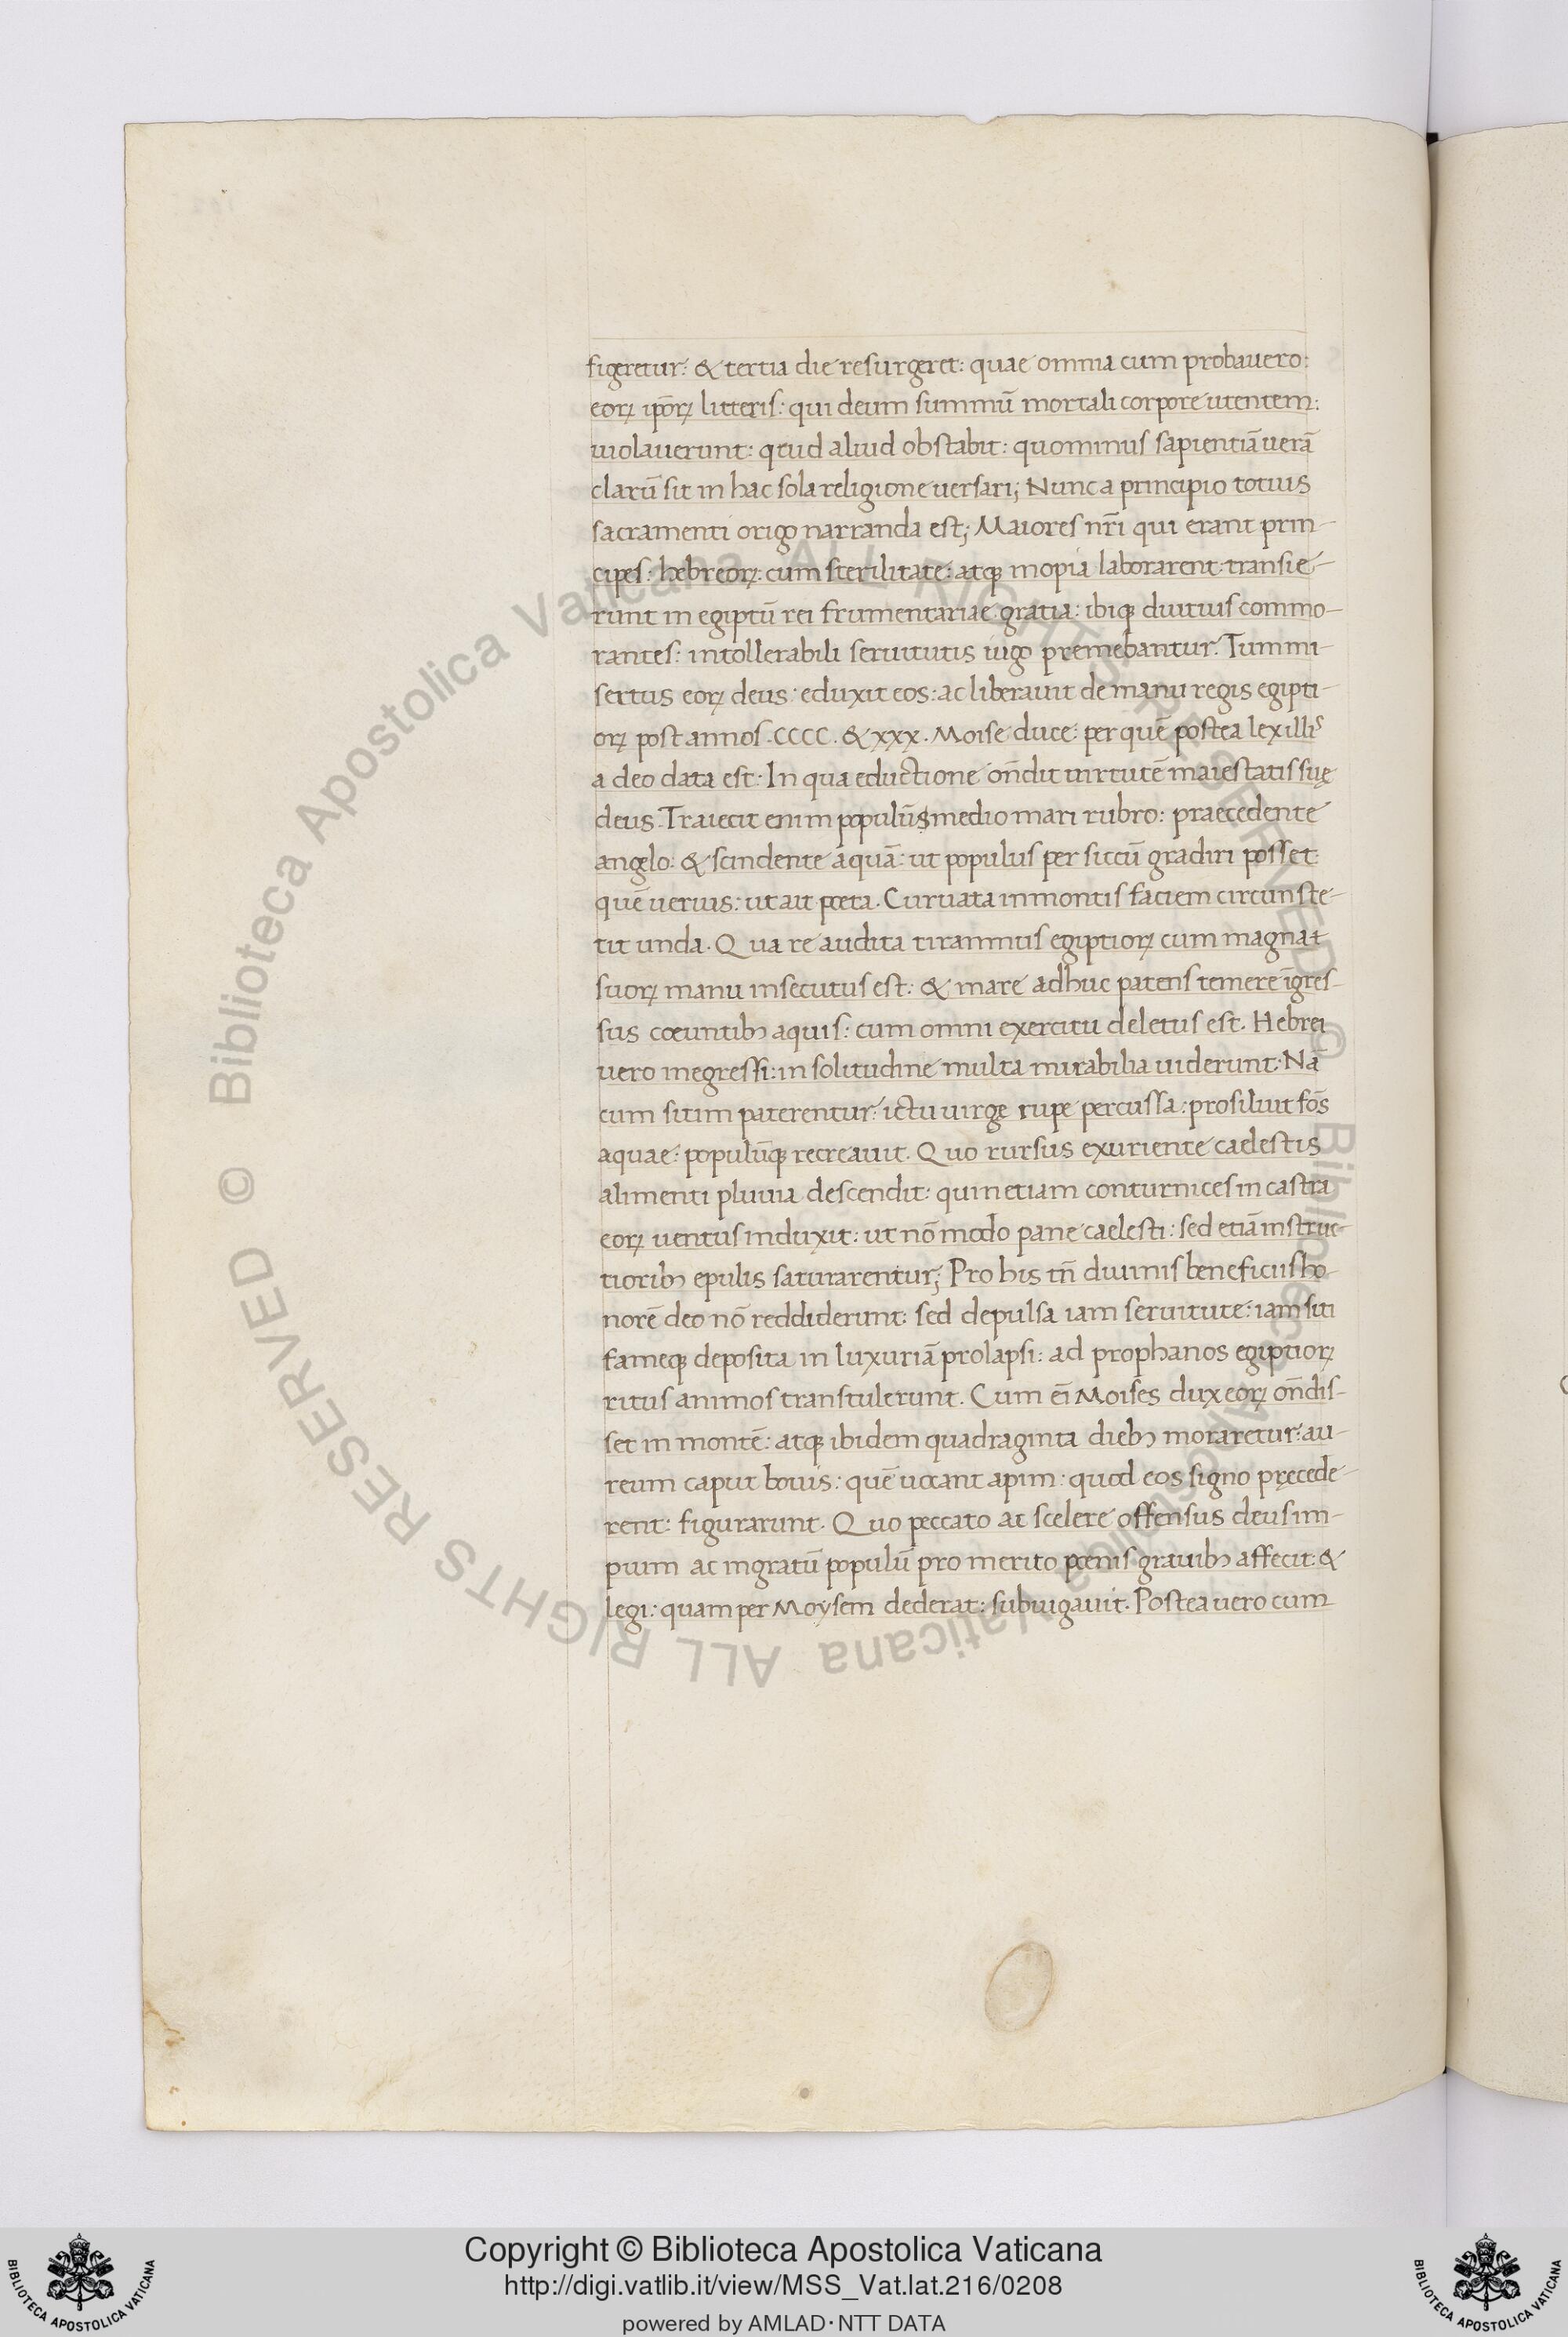 figeretur: & tertia die resurgeret: quae omnia cum probauero:
eoꝝ ip̄oꝝ litteris: qui deum summū mortali corpore utentem:
uiolauerunt: qeud aliud obstabit: quominus sapientiā uerā
clarū sit in hac sola religione uersari; Nunc a principio totius
sacramenti origo narranda est; Maiores nr̄i qui erant prin-
cipes: hebreoꝝ: cum sterilitate: atqꝫ inopia laborarent: transie-
runt in egiptū rei frumentariae gratia: ibiqꝫ diutius commo-
rantes: intollerabili seruitutis iugo premebantur. Tum mi-
sertus eoꝝ deus: eduxit eos: ac liberauit de manu regis egipti-
oꝝ post annos .CCCC. & xxx. Moise duce: per quē postea lex illis
a deo data est: In qua eductione on̄dit uirtutē maiestatis suę
deus. Traiecit enim populū medio mari rubro: praecedente
angelo: & scindente aquā: ut populus per siccū gradiri posset:
quē uerius: ut ait poeta. Curuata in montis faciem circunste-
tit unda. Qua re audita tirannus egiptioꝝ cum magna
suoꝝ manu insecutus est: & mare adhuc patens temere īgres-
sus coeuntibꝫ aquis: cum omni exercitu deletus est. Hebrei
uero inegressi: in solitudine multa mirabilia uiderunt. Nā
cum sitim paterentur: ictu uirgę rupe percussa: prosiliuit fōs
aquae: populūqꝫ recreauit. Quo rursus exuriente caelestis
alimenti pluuia descendit: quin etiam conturnices in castra
eoꝝ uentus induxit: ut nō modo pane caelesti: sed etiā instruc-
tioribꝫ epulis saturarentur; Pro his tn̄ diuinis beneficiis ho-
norē deo nō reddiderunt: sed depulsa iam seruitute: iam siti
fameqꝫ deposita in luxuriā prolapsi: ad prophanos egiptioꝝ
ritus animos transtulerunt. Cum ēi Moises dux eoꝝ on̄dis-
set in montē: atqꝫ ibidem quadraginta diebꝫ moraretur: au-
reum caput bouis: quē uocant apim: quod eos signo pręcede-
rent: figurarunt. Quo peccato ac scelere offensus deus im-
pium ac ingratū populū pro merito poenis grauibꝫ affecit: &
legi: quam per Moysem dederat: subiugauit. Postea uero cum
© Biblioteca Apostolica Vaticana ALL RIGHTS RESERVED © Biblioteca Apostolica Vaticana ALL RIGHTS RESERVED
Copyright © Biblioteca Apostolica Vaticana
http://digi.vatlib.it/view/MSS_Vat.lat.216/0208
powered by AMLAD·NTT DATA
BIBLIOTECA APOSTOLICA VATICANA
BIBLIOTECA APOSTOLICA VATICANA